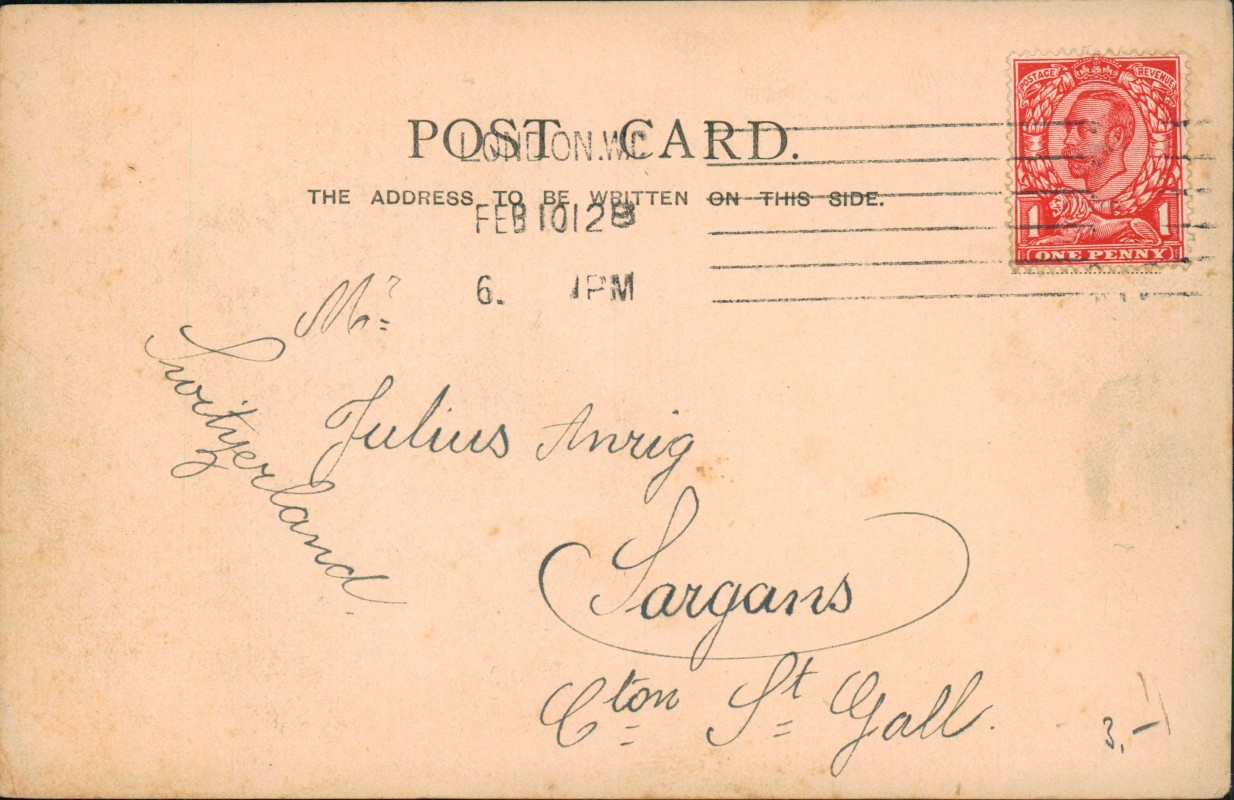 POST CARD.
THE ADDRESS TO BE WRITTEN ON THIS SIDE.
LONDON.W.C
FEB 10 12
6. PM
POSTAGE REVENUE
1 1
ONE PENNY
Mr
Julius Anrig
Sargans
Cton St Gall.
Switzerland.
3,-